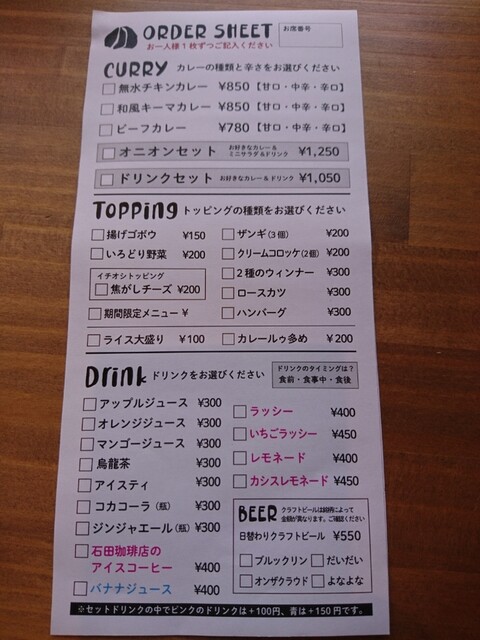 ORDER SHEET
お席番号
お一人様1枚ずつご記入ください
CURRY カレーの種類と辛さをお選びください
無水チキンカレー ¥850【甘口・中辛・辛口】
和風キーマカレー ¥850【甘口・中辛・辛口】
ビーフカレー ¥780【甘口・中辛・辛口】
オニオンセット お好きなカレー& ミニサラダ&ドリンク ¥1,250
ドリンクセット お好きなカレー&ドリンク ¥1,050
TOPPING トッピングの種類をお選びください
揚げゴボウ ¥150
いろどり野菜 ¥200
イチオシトッピング
焦がしチーズ ¥200
期間限定メニュー ¥
ザンギ(3個) ¥200
クリームコロッケ(2個) ¥200
2種のウィンナー ¥300
ロースカツ ¥300
ハンバーグ ¥300
ライス大盛り ¥100
カレールゥ多め ¥200
Drink ドリンクをお選びください
ドリンクのタイミングは?
食前・食事中・食後
アップルジュース ¥300
オレンジジュース ¥300
マンゴージュース ¥300
烏龍茶 ¥300
アイスティ ¥300
コカコーラ(瓶) ¥300
ジンジャエール(瓶) ¥300
石田珈琲店の
アイスコーヒー ¥400
バナナジュース ¥400
ラッシー ¥400
いちごラッシー ¥450
レモネード ¥400
カシスレモネード ¥450
BEER クラフトビールは銘柄によって
金額が異なります。ご確認ください
日替わりクラフトビール ¥550
ブルックリン だいだい
オンザクラウド よなよな
※セットドリンクの中でピンクのドリンクは+100円、青は+150円です。